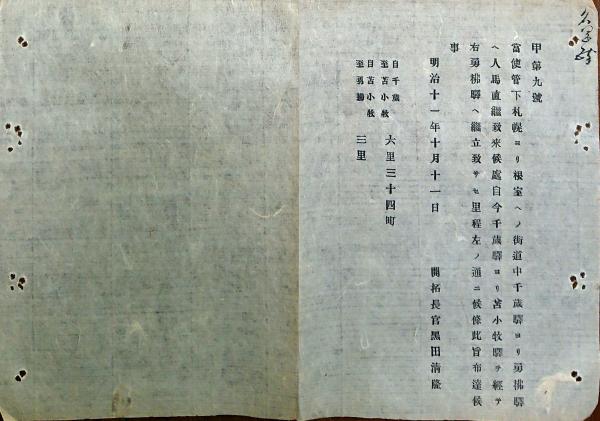 甲第九號
當使管下札幌ヨリ根室ヘノ街道中千歳驛ヨリ勇拂驛
ヘ人馬直繼致來候處自今千歳驛ヨリ苫小牧驛ヲ經テ
右勇拂驛ヘ繼立致サセ里程左ノ通ニ候條此旨布達候
事
明治十一年十月十一日
開拓長官黑田清隆
自千歳
至苫小牧
六里三十四町
自苫小牧
至勇拂
三里